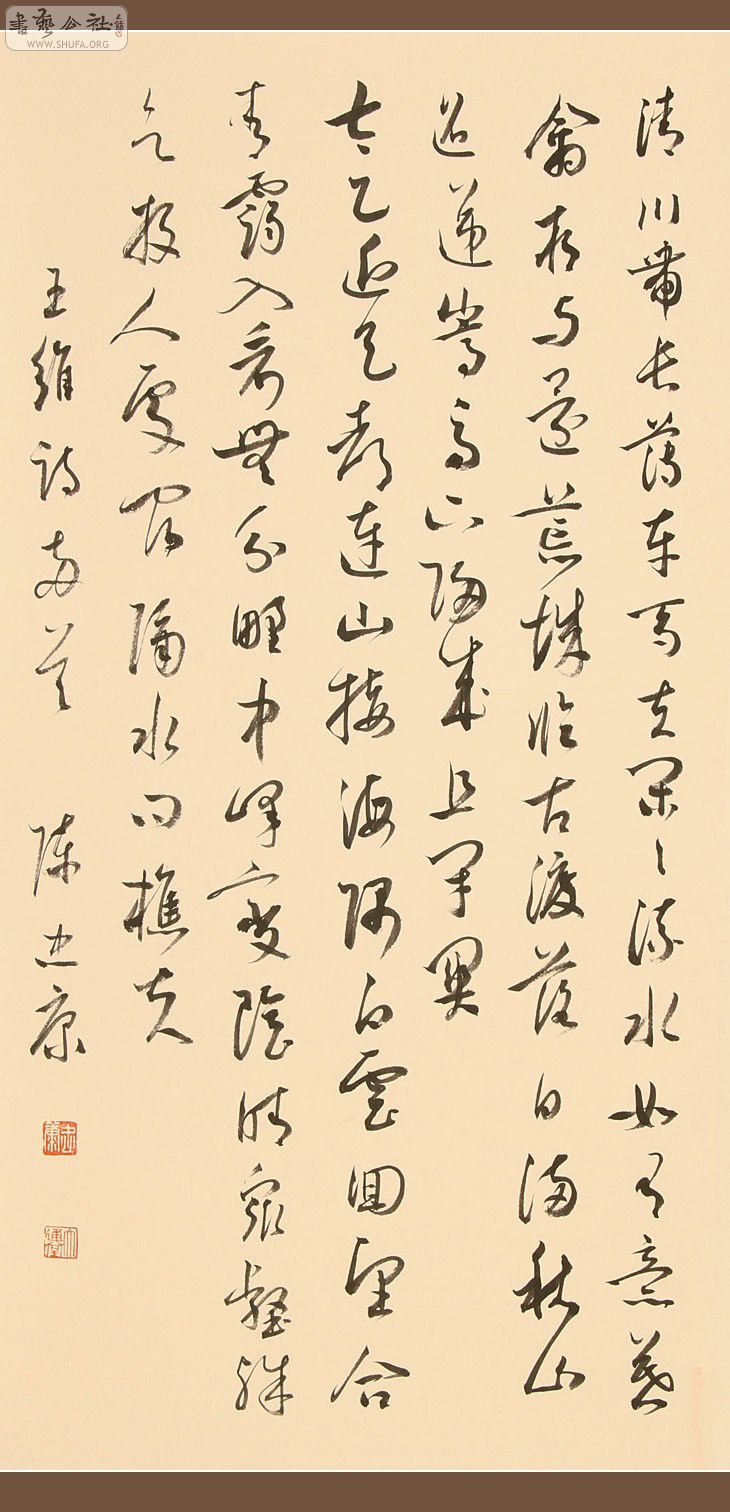 書藝公社
WWW.SHUFA.ORG
清川帶長薄車馬去閑々流水如有意暮
禽相与還荒城臨古渡落日滿秋山
迢遞嵩高下歸來且閉關
太乙近天都連山接海隅白雲回望合
青靄入看無分野中峰變陰晴衆壑殊
欲投人處宿隔水問樵夫
王維詩兩首 陳忠康